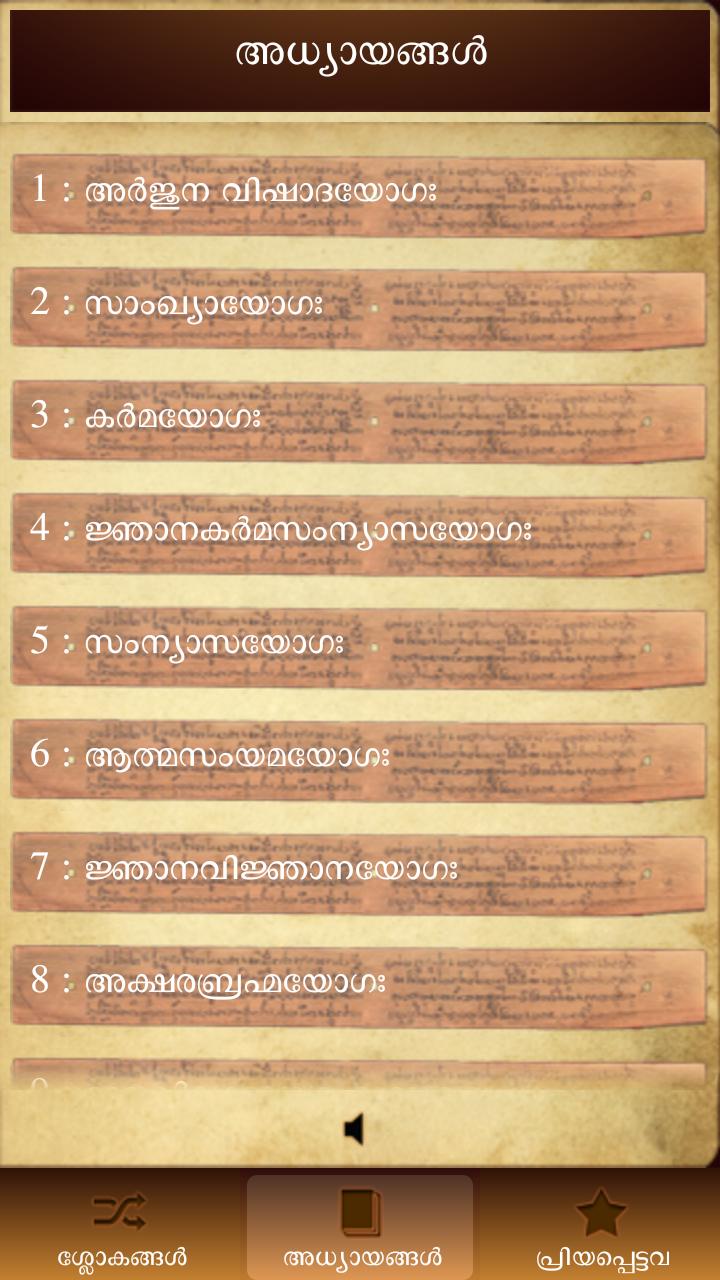 അധ്യായങ്ങൾ
1 : അർജുന വിഷാദയോഗഃ
2 : സാംഖ്യായോഗഃ
3 : കർമയോഗഃ
4 : ജ്ഞാനകർമസംന്യാസയോഗഃ
5 : സംന്യാസയോഗഃ
6 : ആത്മസംയമയോഗഃ
7 : ജ്ഞാനവിജ്ഞാനയോഗഃ
8 : അക്ഷരബ്രഹ്മയോഗഃ
ശ്ലോകങ്ങൾ അധ്യായങ്ങൾ പ്രിയപ്പെട്ടവ